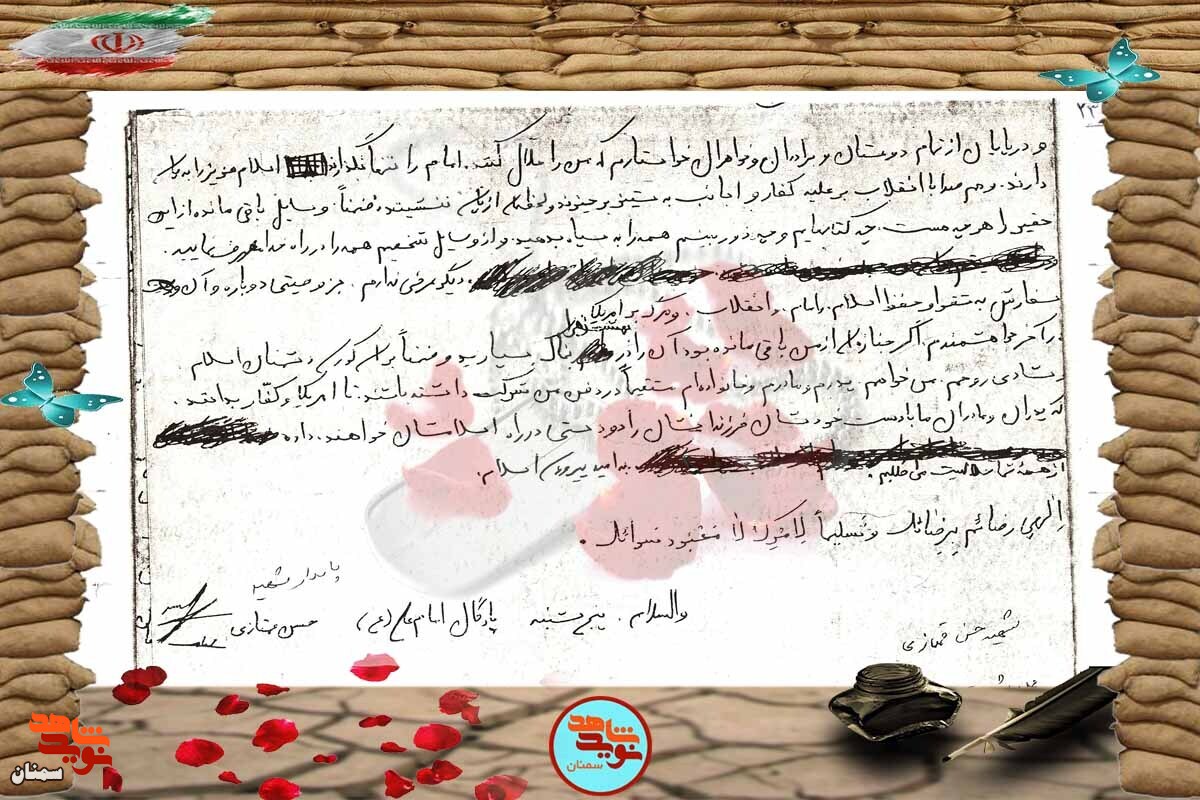 ۲۳
و در پایان از تمام دوستان و برادران و خواهران خواستارم که من را حلال کنند. امام را تنها نگذارند اسلام عزیز را به پای
دارند. و هم صدا با انقلاب بر علیه کفار و اجانب به ستیز برخیزند و لحظه‌ای از پای ننشینند. ضمناً. وسایل باقی مانده از این
حقیر را هر چه هست. چه کتابهایم و چه دوربینم همه را به سپاه بدهید. و از وسایل شخصیم همه را در راه خدا صرف نمایید.
دیگر عرضی ندارم. جز وصیتی دوباره و آن
سفارش به تقوا و حفظ اسلام. امام. و انقلاب. و مرگ بر امریکا
بهشت زهرا
و آخر خواهشمندم. اگر جنازه‌ای از من باقی مانده بود آن را در بخاک بسپارید و ضمناً برای کوری دشمنان اسلام
و شادی روحم. می‌خواهم. پدرم و مادرم و خانواده‌ام مستقیماً در دفن من شرکت داشته باشند. تا امریکا و کفار بدانند.
که پدران و مادران ما با دست خودشان فرزندانشان را در راه اسلامشان خواهند. داد
از همه شما حلالیت می‌طلبم. به امید پیروزی اسلام.
الهی رضائم برضائک و تسلیماً لامرک لا معبود سوائک.
والسلام. پنج شنبه پادگان امام علی (ع) حسن
پاسدار شهید
شهید حسن
شاهد
نوید
سمنان
شاهد
نوید
سمنان